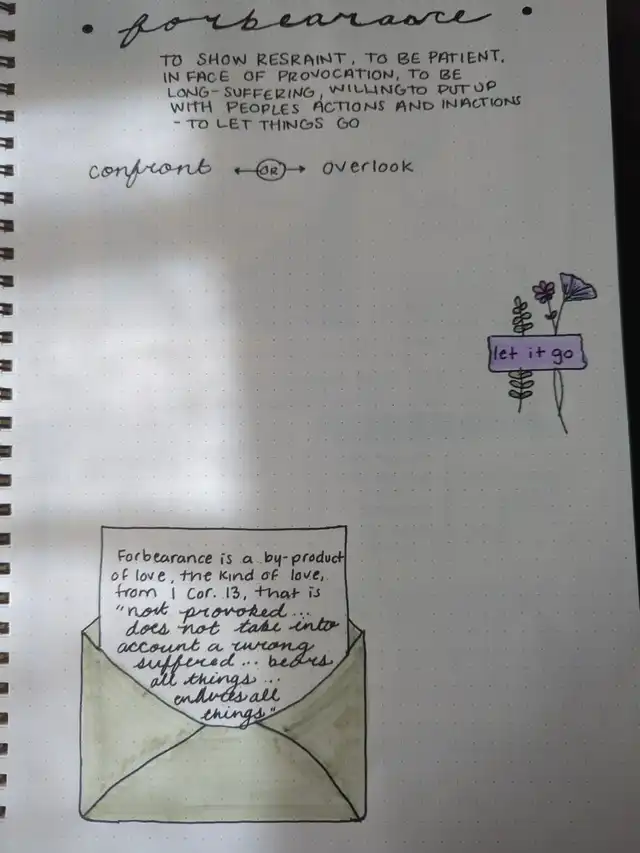 forbearance
TO SHOW RESRAINT, TO BE PATIENT,
IN FACE OF PROVOCATION, TO BE
LONG-SUFFERING, WILLING TO PUT UP
WITH PEOPLES ACTIONS AND INACTIONS
- TO LET THINGS GO
confront ← OR → overlook
let it go
Forbearance is a by-product
of love, the kind of love,
from 1 Cor. 13, that is
"not provoked...
does not take into
account a wrong
suffered... bears
all things...
endures all
things"